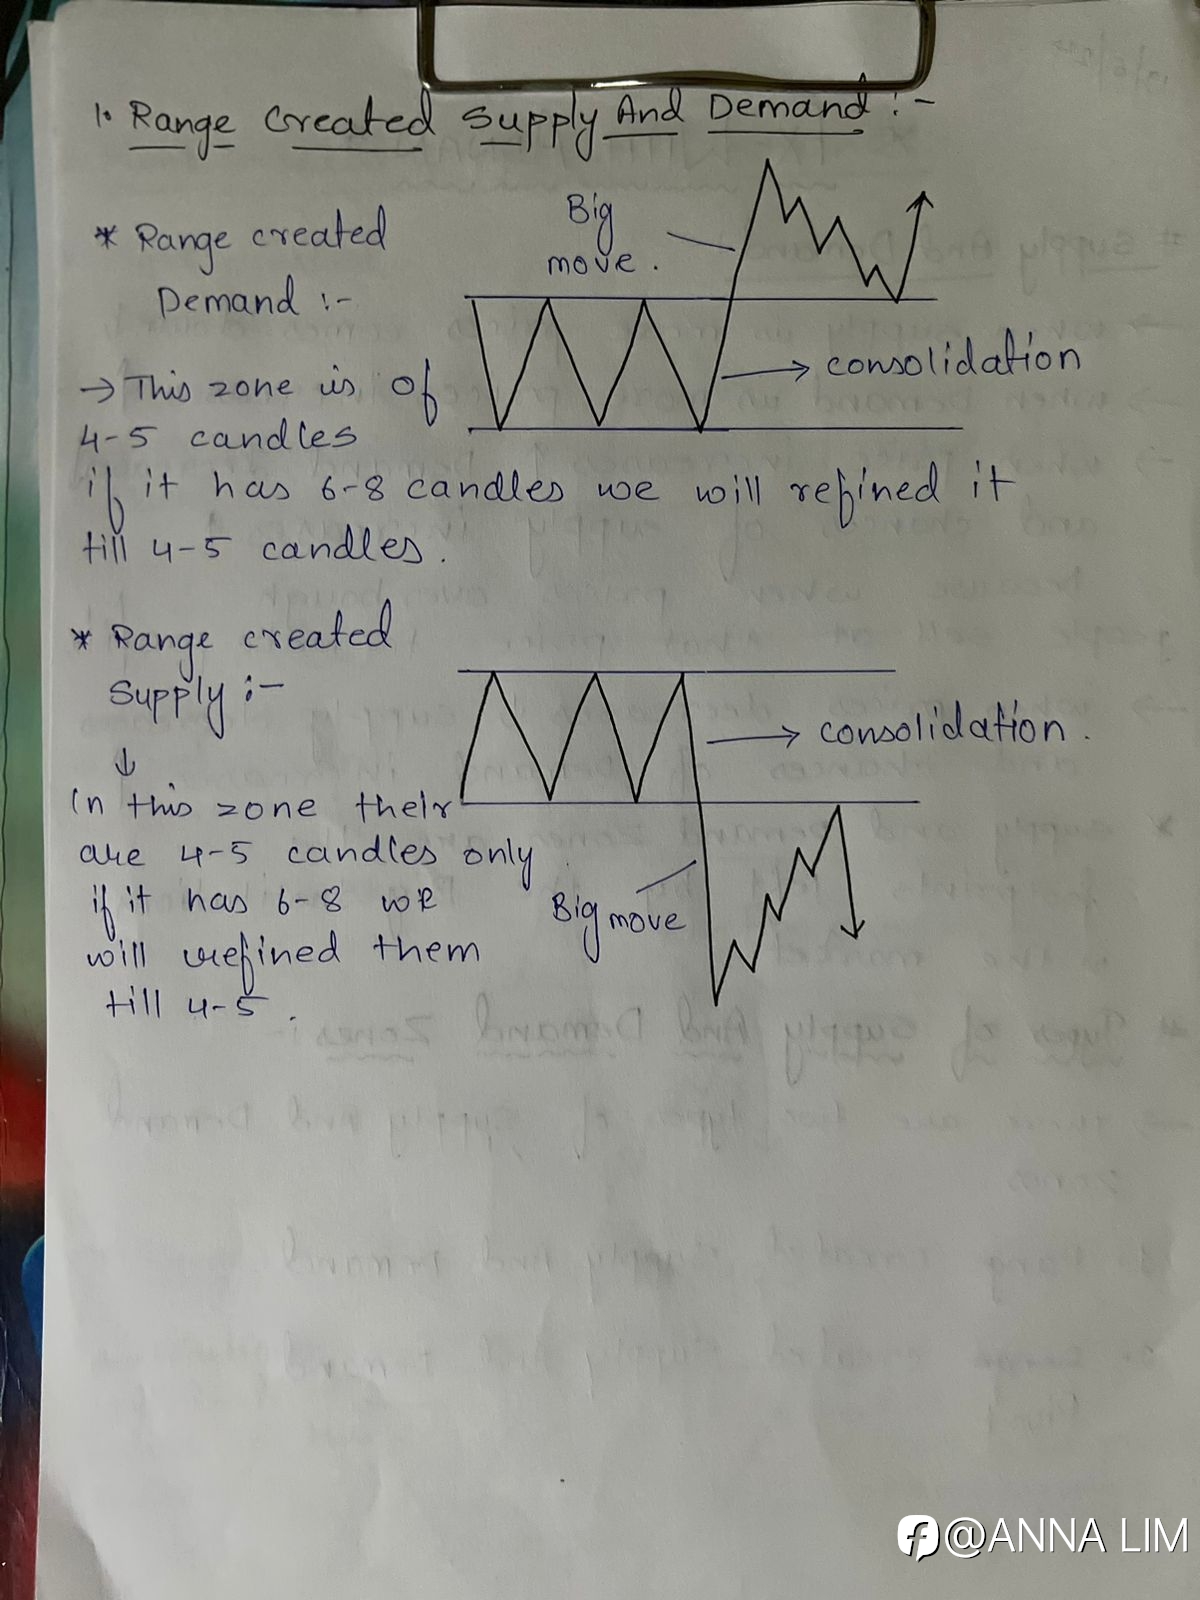 1. Range Created Supply And Demand :-
* Range created
Demand :-
Big
move.
→ consolidation
→ This zone is of
4-5 candles
if it has 6-8 candles we will refined it
till 4-5 candles.
* Range created
Supply :-
↓
→ consolidation.
In this zone their
are 4-5 candles only
if it has 6-8 we
will refined them
till 4-5.
Big move
@ANNA LIM